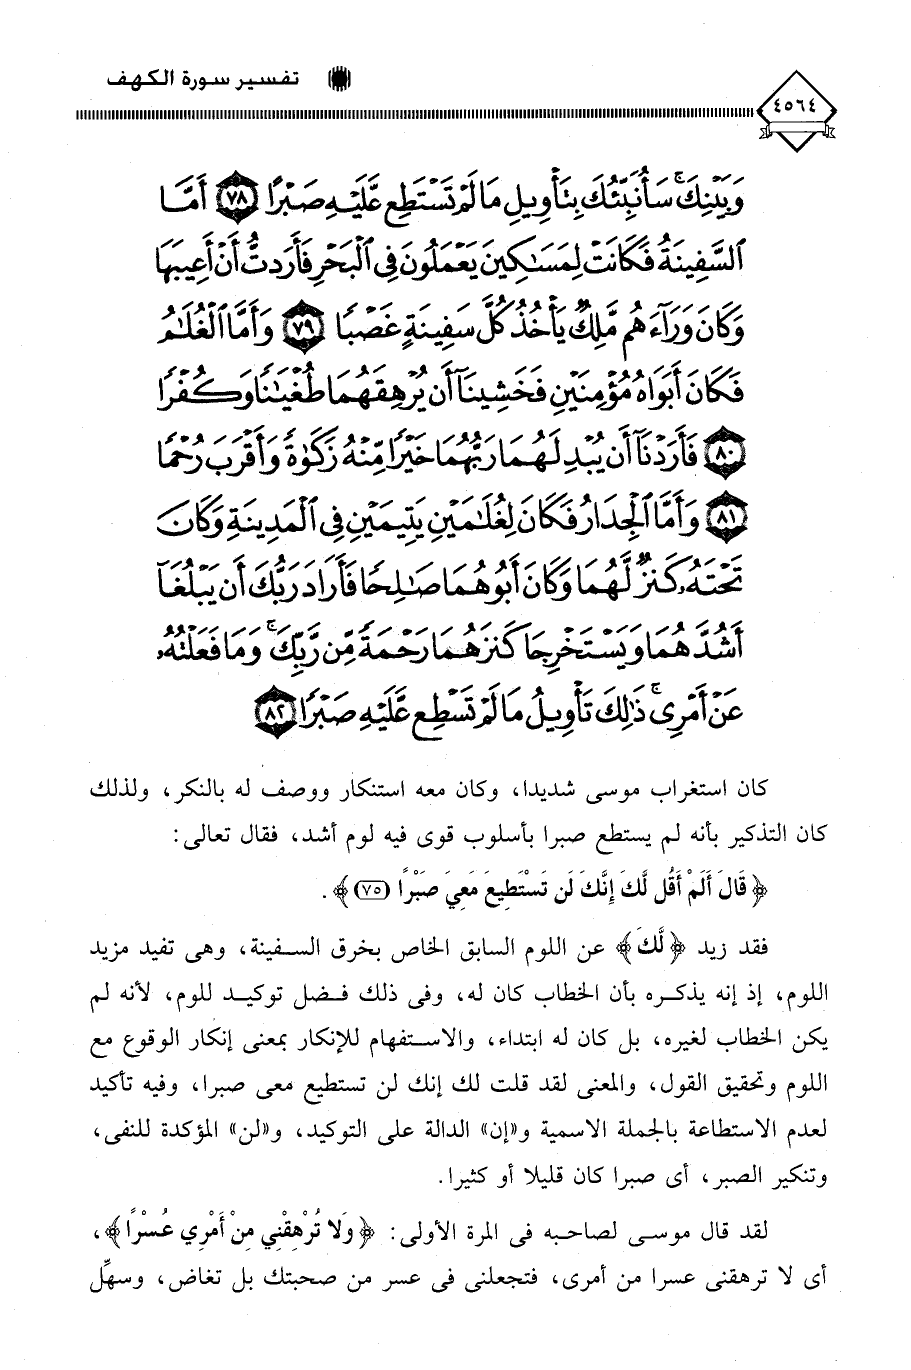 تفسير سورة الكهف
٤٥٦٤
وَبَيْنِكَ ۚ سَأُنَبِّئُكَ بِتَأْوِيلِ مَا لَمْ تَسْتَطِع عَّلَيْهِ صَبْرًا ٧٨ أَمَّا
ٱلسَّفِينَةُ فَكَانَتْ لِمَسَٰكِينَ يَعْمَلُونَ فِى ٱلْبَحْرِ فَأَرَدتُّ أَنْ أَعِيبَهَا
وَكَانَ وَرَآءَهُم مَّلِكٌ يَأْخُذُ كُلَّ سَفِينَةٍ غَصْبًا ٧٩ وَأَمَّا ٱلْغُلَٰمُ
فَكَانَ أَبَوَاهُ مُؤْمِنَيْنِ فَخَشِينَآ أَن يُرْهِقَهُمَا طُغْيَٰنًا وَكُفْرًا
٨٠ فَأَرَدْنَآ أَن يُبْدِلَهُمَا رَبُّهُمَا خَيْرًا مِّنْهُ زَكَوٰةً وَأَقْرَبَ رُحْمًا
٨١ وَأَمَّا ٱلْجِدَارُ فَكَانَ لِغُلَٰمَيْنِ يَتِيمَيْنِ فِى ٱلْمَدِينَةِ وَكَانَ
تَحْتَهُۥ كَنزٌ لَّهُمَا وَكَانَ أَبُوهُمَا صَٰلِحًا فَأَرَادَ رَبُّكَ أَن يَبْلُغَآ
أَشُدَّهُمَا وَيَسْتَخْرِجَا كَنزَهُمَا رَحْمَةً مِّن رَّبِّكَ ۚ وَمَا فَعَلْتُهُۥ
عَنْ أَمْرِى ۚ ذَٰلِكَ تَأْوِيلُ مَا لَمْ تَسْطِع عَّلَيْهِ صَبْرًا ٨٢
كان استغراب موسى شديدا، وكان معه استنكار ووصف له بالنكر، ولذلك
كان التذكير بأنه لم يستطع صبرا بأسلوب قوى فيه لوم أشد، فقال تعالى:
﴿ قَالَ أَلَمْ أَقُل لَّكَ إِنَّكَ لَن تَسْتَطِيعَ مَعِيَ صَبْرًا (٧٥) ﴾.
فقد زيد ﴿ لَّكَ ﴾ عن اللوم السابق الخاص بخرق السفينة، وهى تفيد مزيد
اللوم، إذ إنه يذكره بأن الخطاب كان له، وفى ذلك فضل توكيد للوم، لأنه لم
يكن الخطاب لغيره، بل كان له ابتداء، والاستفهام للإنكار بمعنى إنكار الوقوع مع
اللوم وتحقيق القول، والمعنى لقد قلت لك إنك لن تستطيع معى صبرا، وفيه تأكيد
لعدم الاستطاعة بالجملة الاسمية و«إن» الدالة على التوكيد، و«لن» المؤكدة للنفى،
وتنكير الصبر، أى صبرا كان قليلا أو كثيرا.
لقد قال موسى لصاحبه فى المرة الأولى: ﴿ وَلا تُرْهِقْنِي مِنْ أَمْرِي عُسْرًا ﴾،
أى لا ترهقنى عسرا من أمرى، فتجعلنى فى عسر من صحبتك بل تغاض، وسهِّل